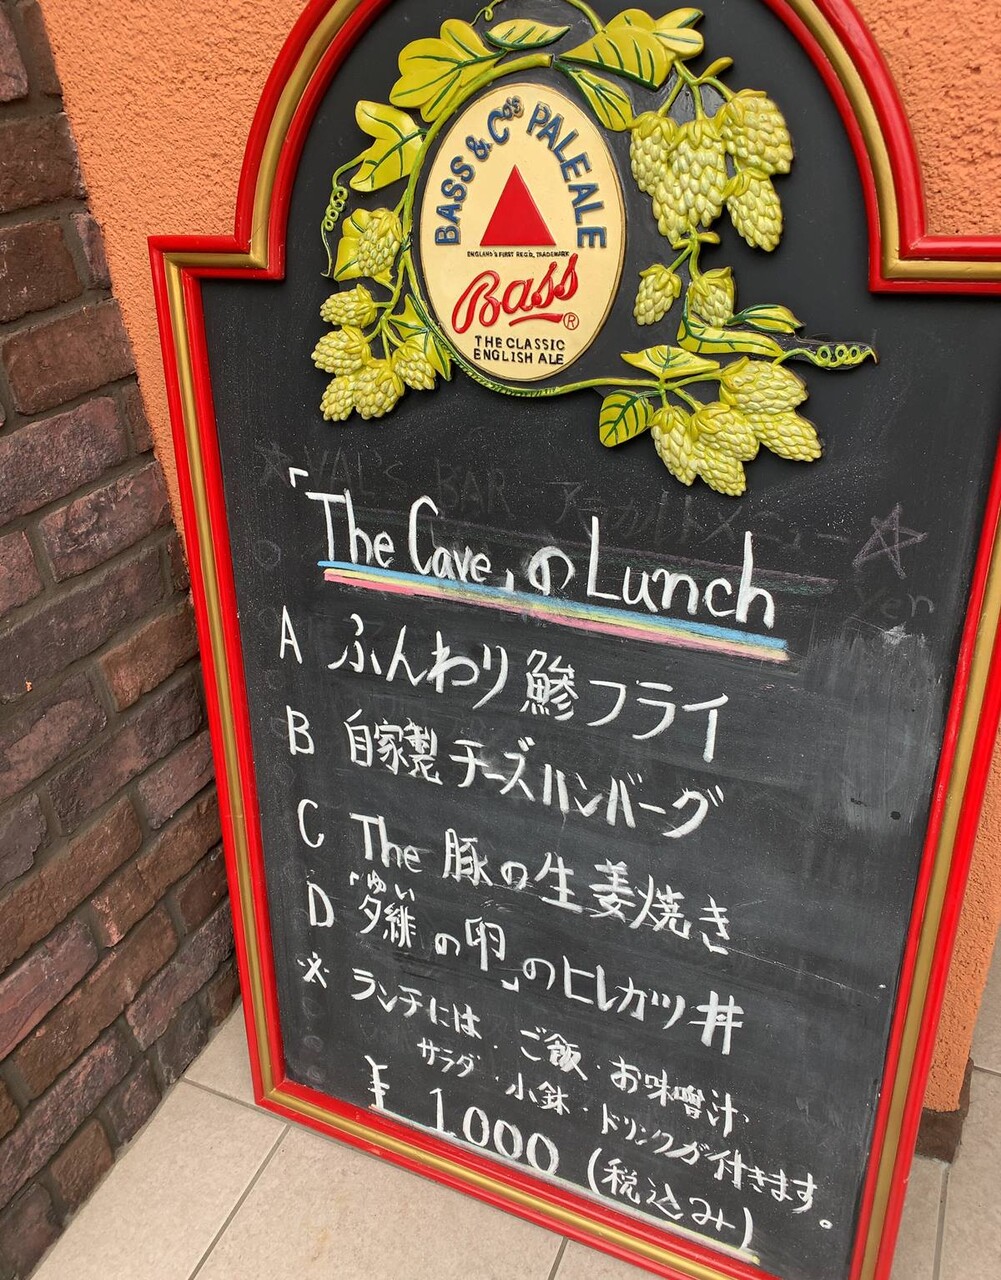 BASS & Cᵒ'ˢ PALE ALE
ENGLAND'S FIRST REG'D. TRADEMARK
Bass®
THE CLASSIC
ENGLISH ALE
☆ VAL'S BAR
「The Cave」の Lunch
A ふんわり鯵フライ
B 自家製チーズハンバーグ
C The 豚の生姜焼き
ゆい
D 「夕緋の卵」のヒレカツ丼
※ ランチには・ご飯・お味噌汁・
サラダ・小鉢・ドリンクが付きます。
¥1000 (税込み)